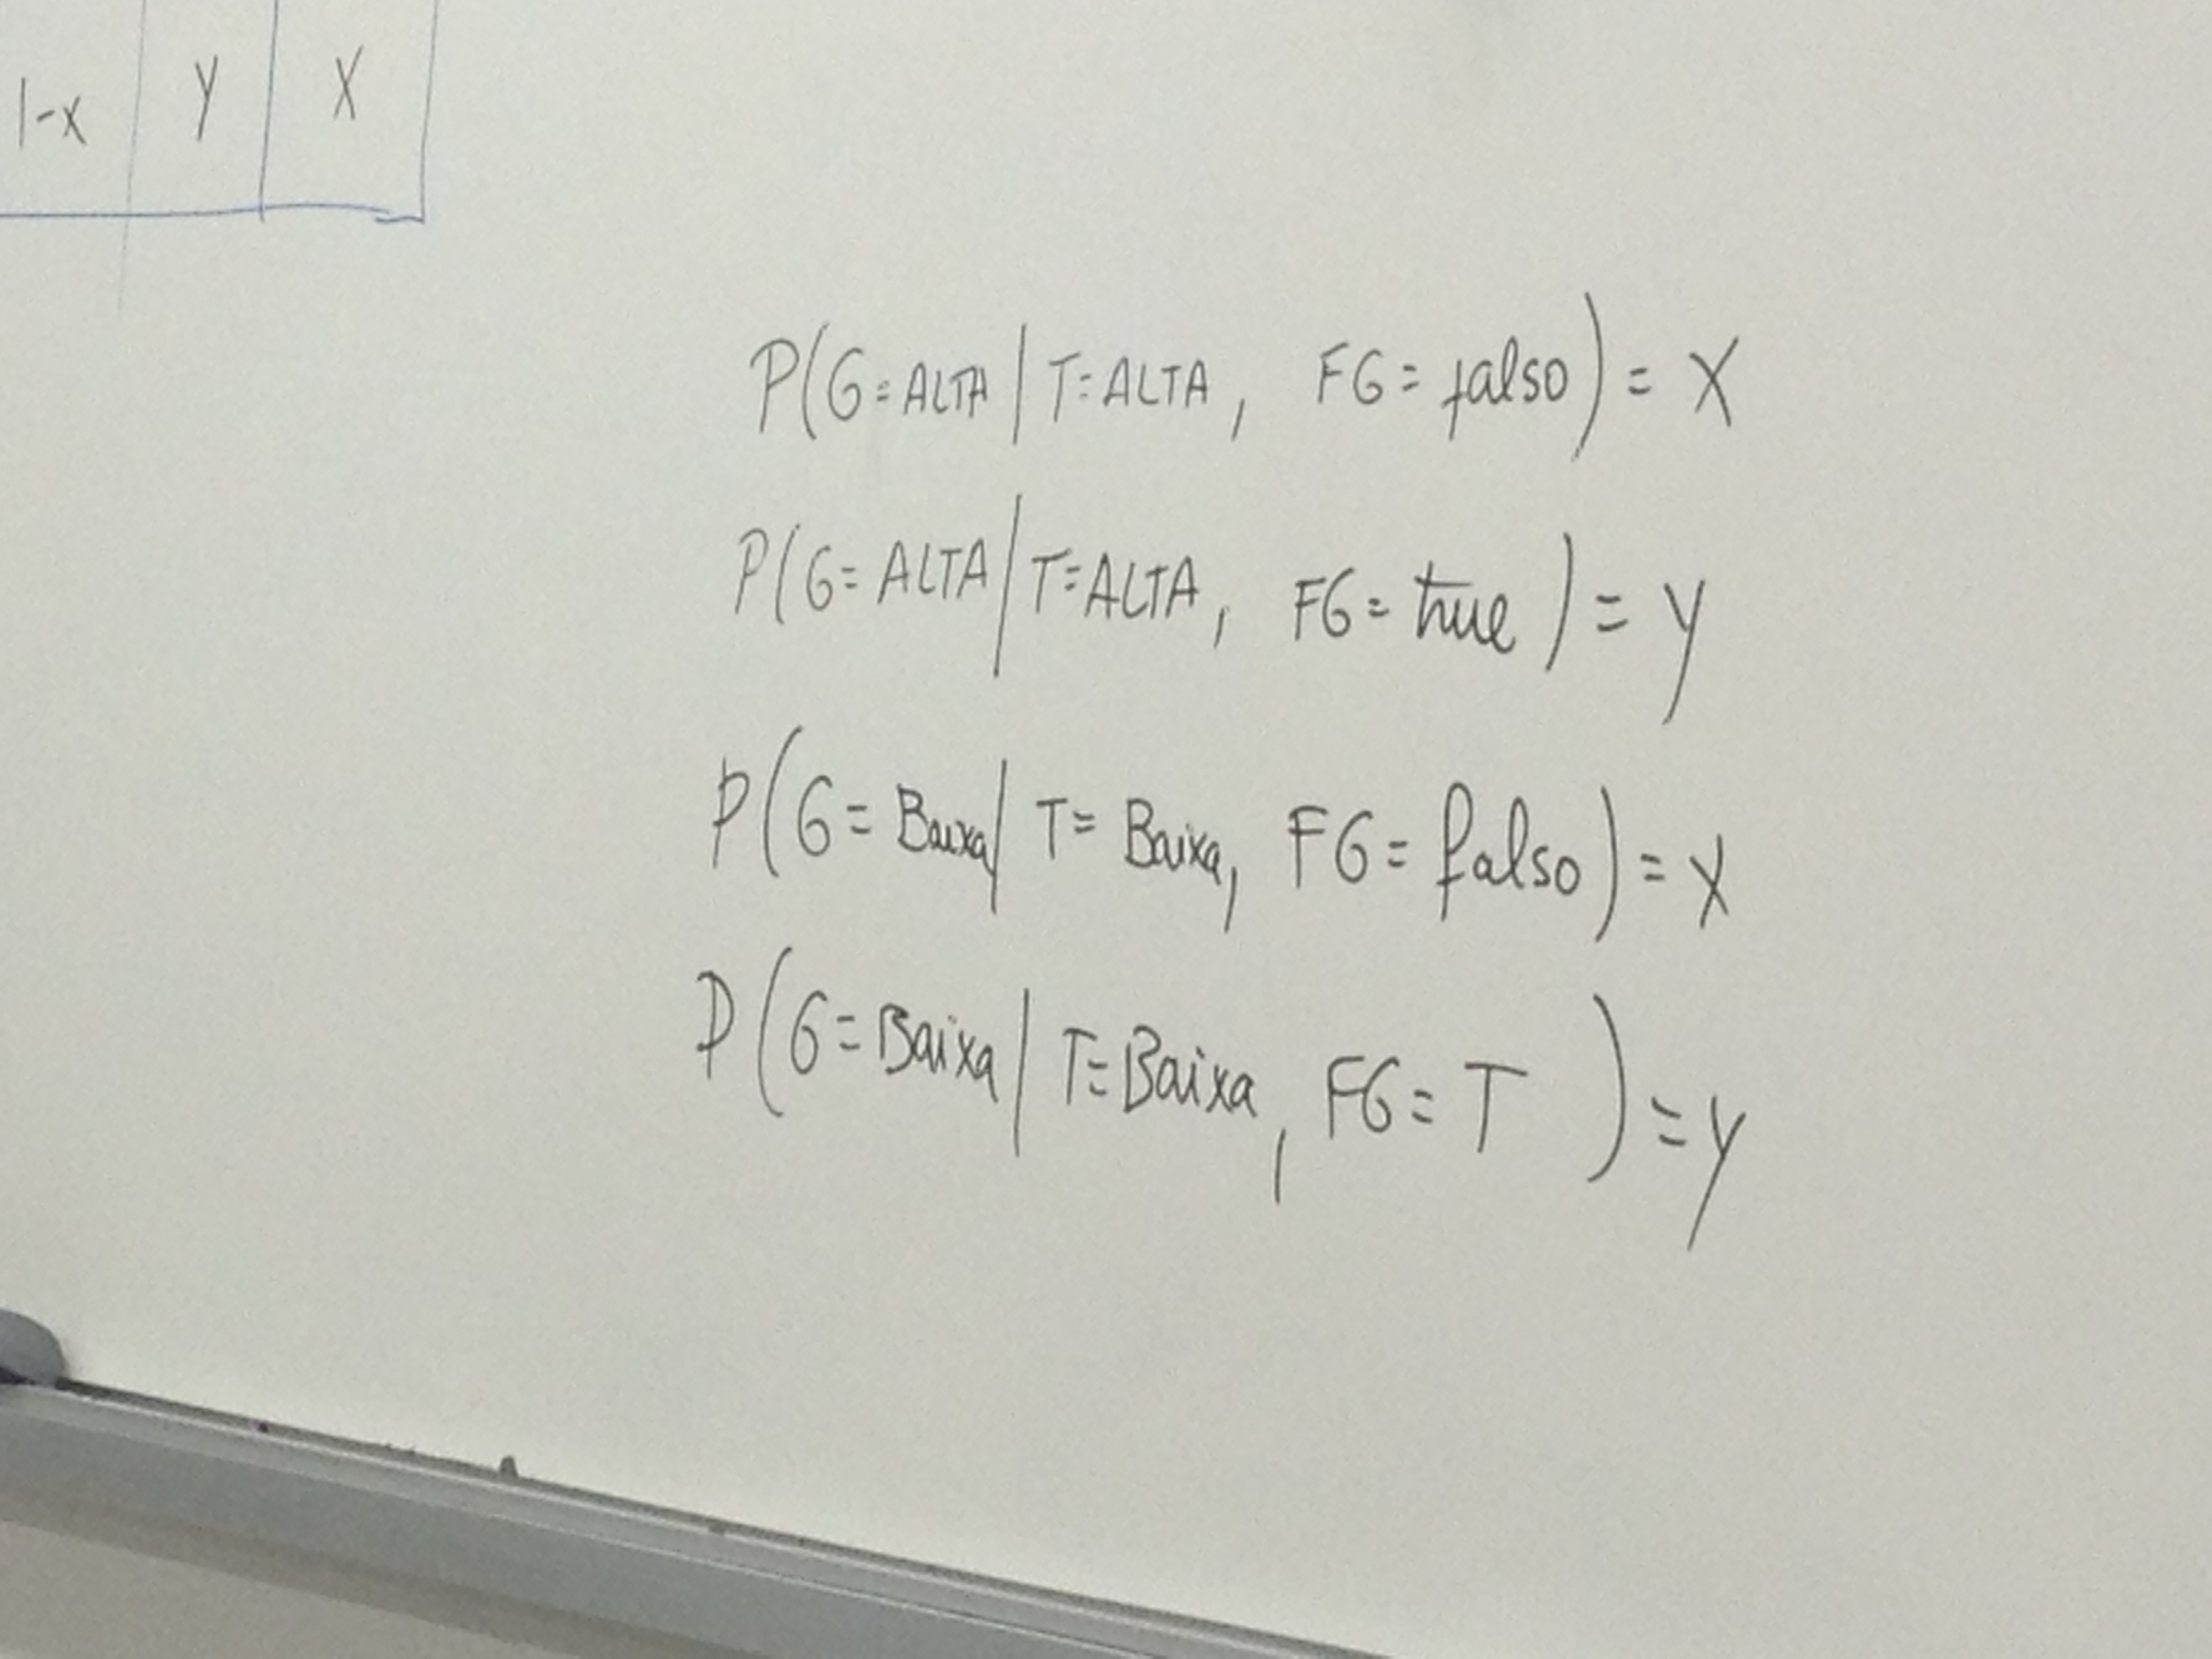 1-x y x
P(G=ALTA | T=ALTA, FG=falso) = X
P(G=ALTA | T=ALTA, FG=true) = y
P(G=Baixa | T=Baixa, FG=falso) = x
P(G=Baixa | T=Baixa, FG=T) = y